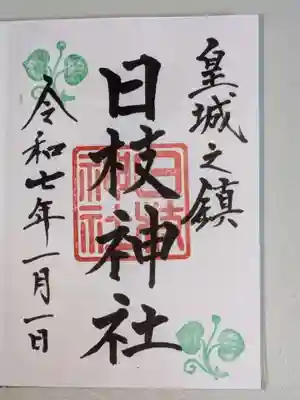 皇城之鎮
日枝神社
日枝神社
令和七年一月一日